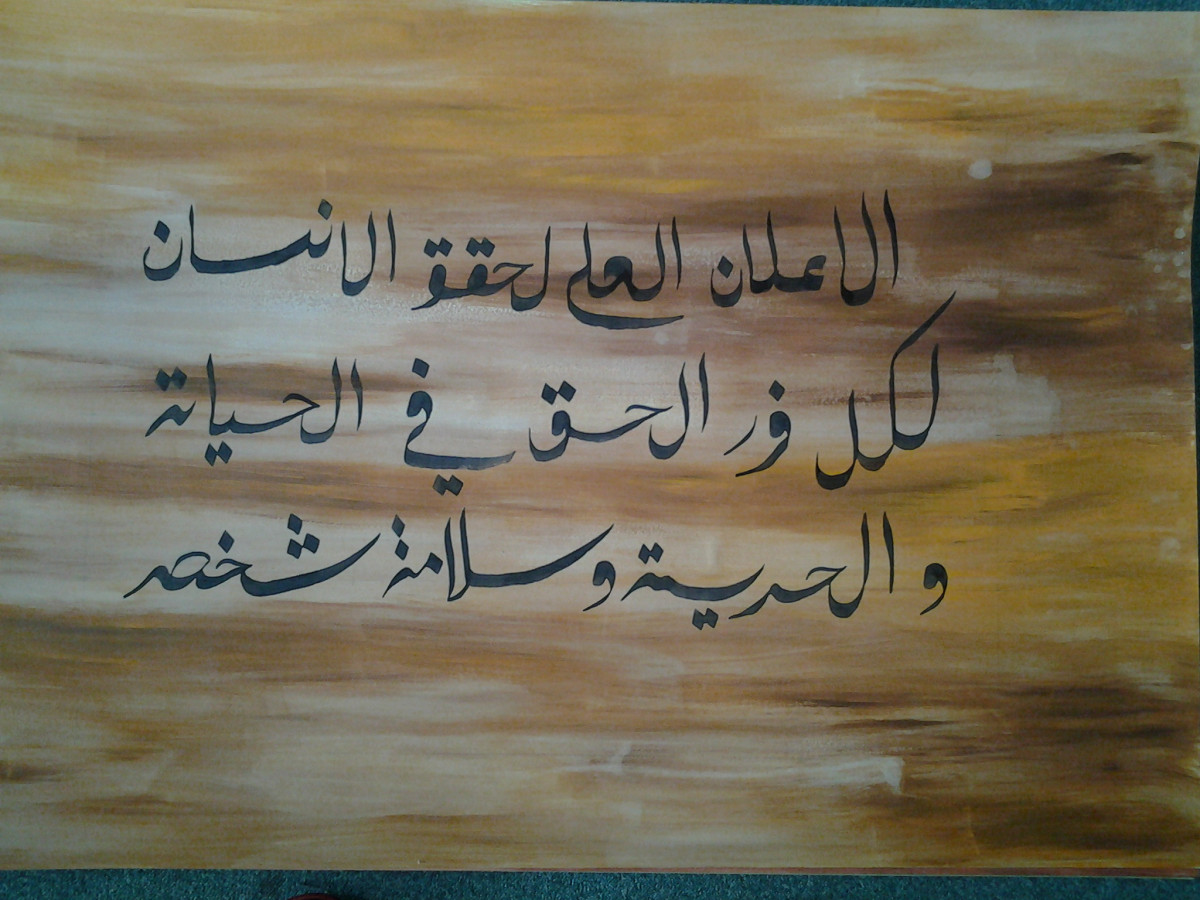 الاعلان العلى لحقق الانسان
لكل فر الحق في الحياة
و الحرية وسلامة شخصه